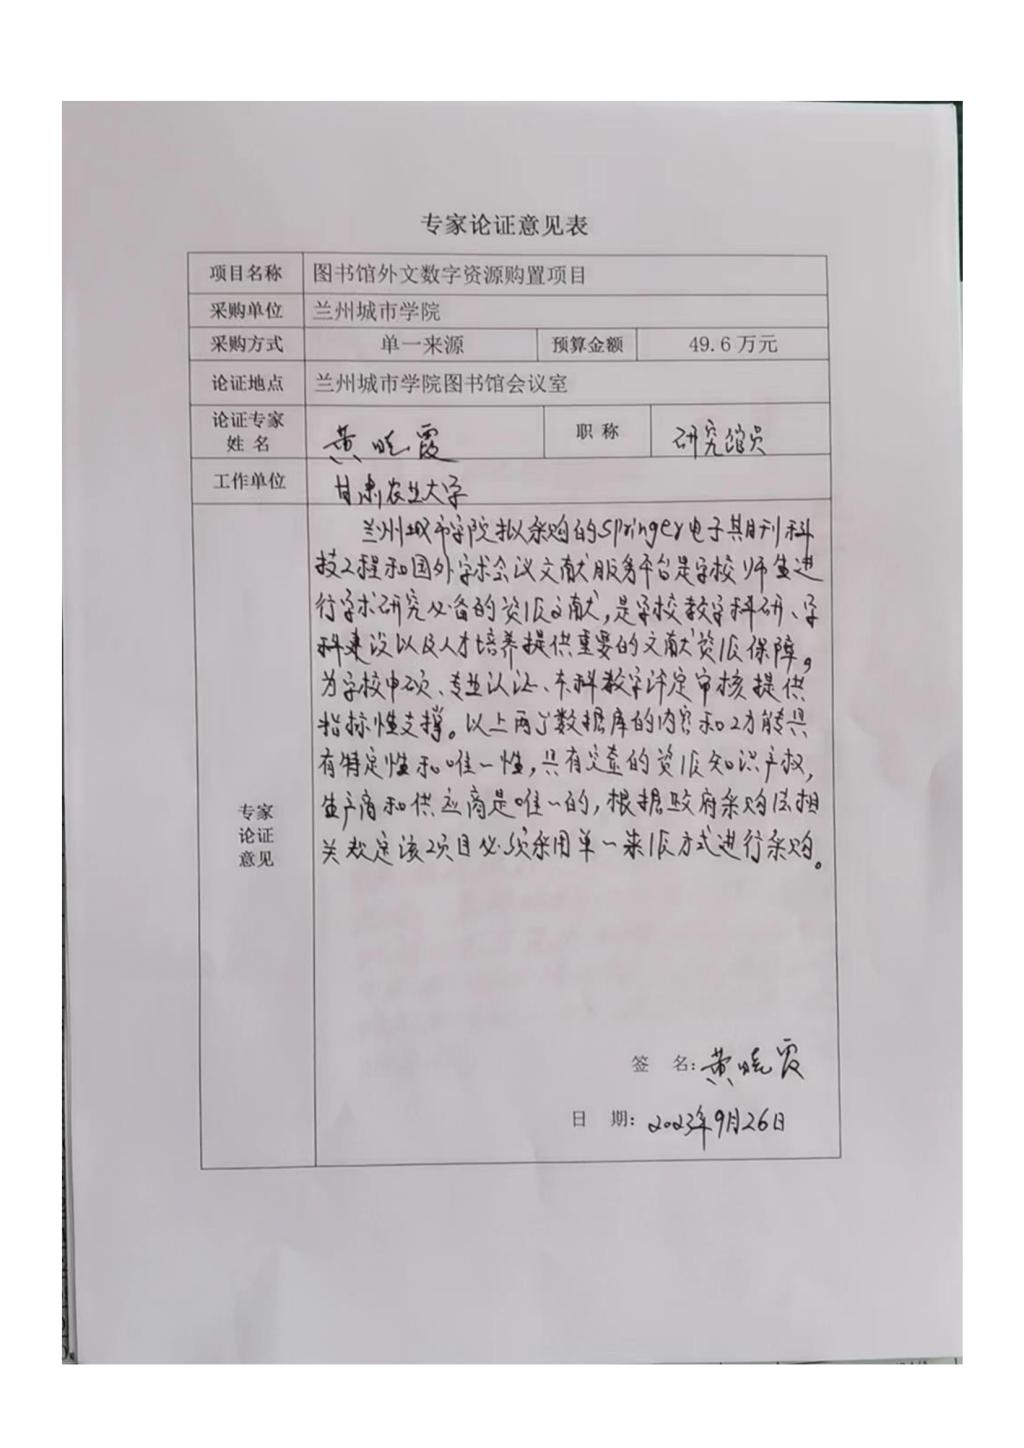 专家论证意见表
项目名称 图书馆外文数字资源购置项目
采购单位 兰州城市学院
采购方式 单一来源 预算金额 49.6 万元
论证地点 兰州城市学院图书馆会议室
论证专家
姓 名 黄晓霞 职 称 研究馆员
工作单位 甘肃农业大学
兰州城市学院拟采购的springer电子期刊科
技工程和国外学术会议文献服务平台是学校师生进
行学术研究必备的资源文献,是学校教学科研、学
科建设以及人才培养提供重要的文献资源保障。
为学校申硕、专业认证、本科教学评定审核提供
指标性支撑。以上两个数据库的内容和功能具
有特定性和唯一性,具有完整的资源知识产权,
生产商和供应商是唯一的,根据政府采购法相
关规定该项目必须采用单一来源方式进行采购。
专家
论证
意见
签 名:黄晓霞
日 期:2023年9月26日